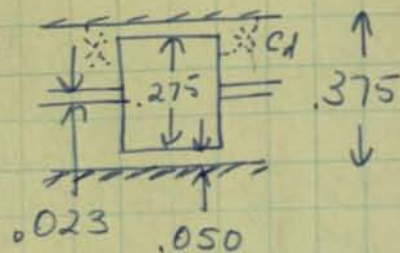 Cd
.275
.375
.023
.050